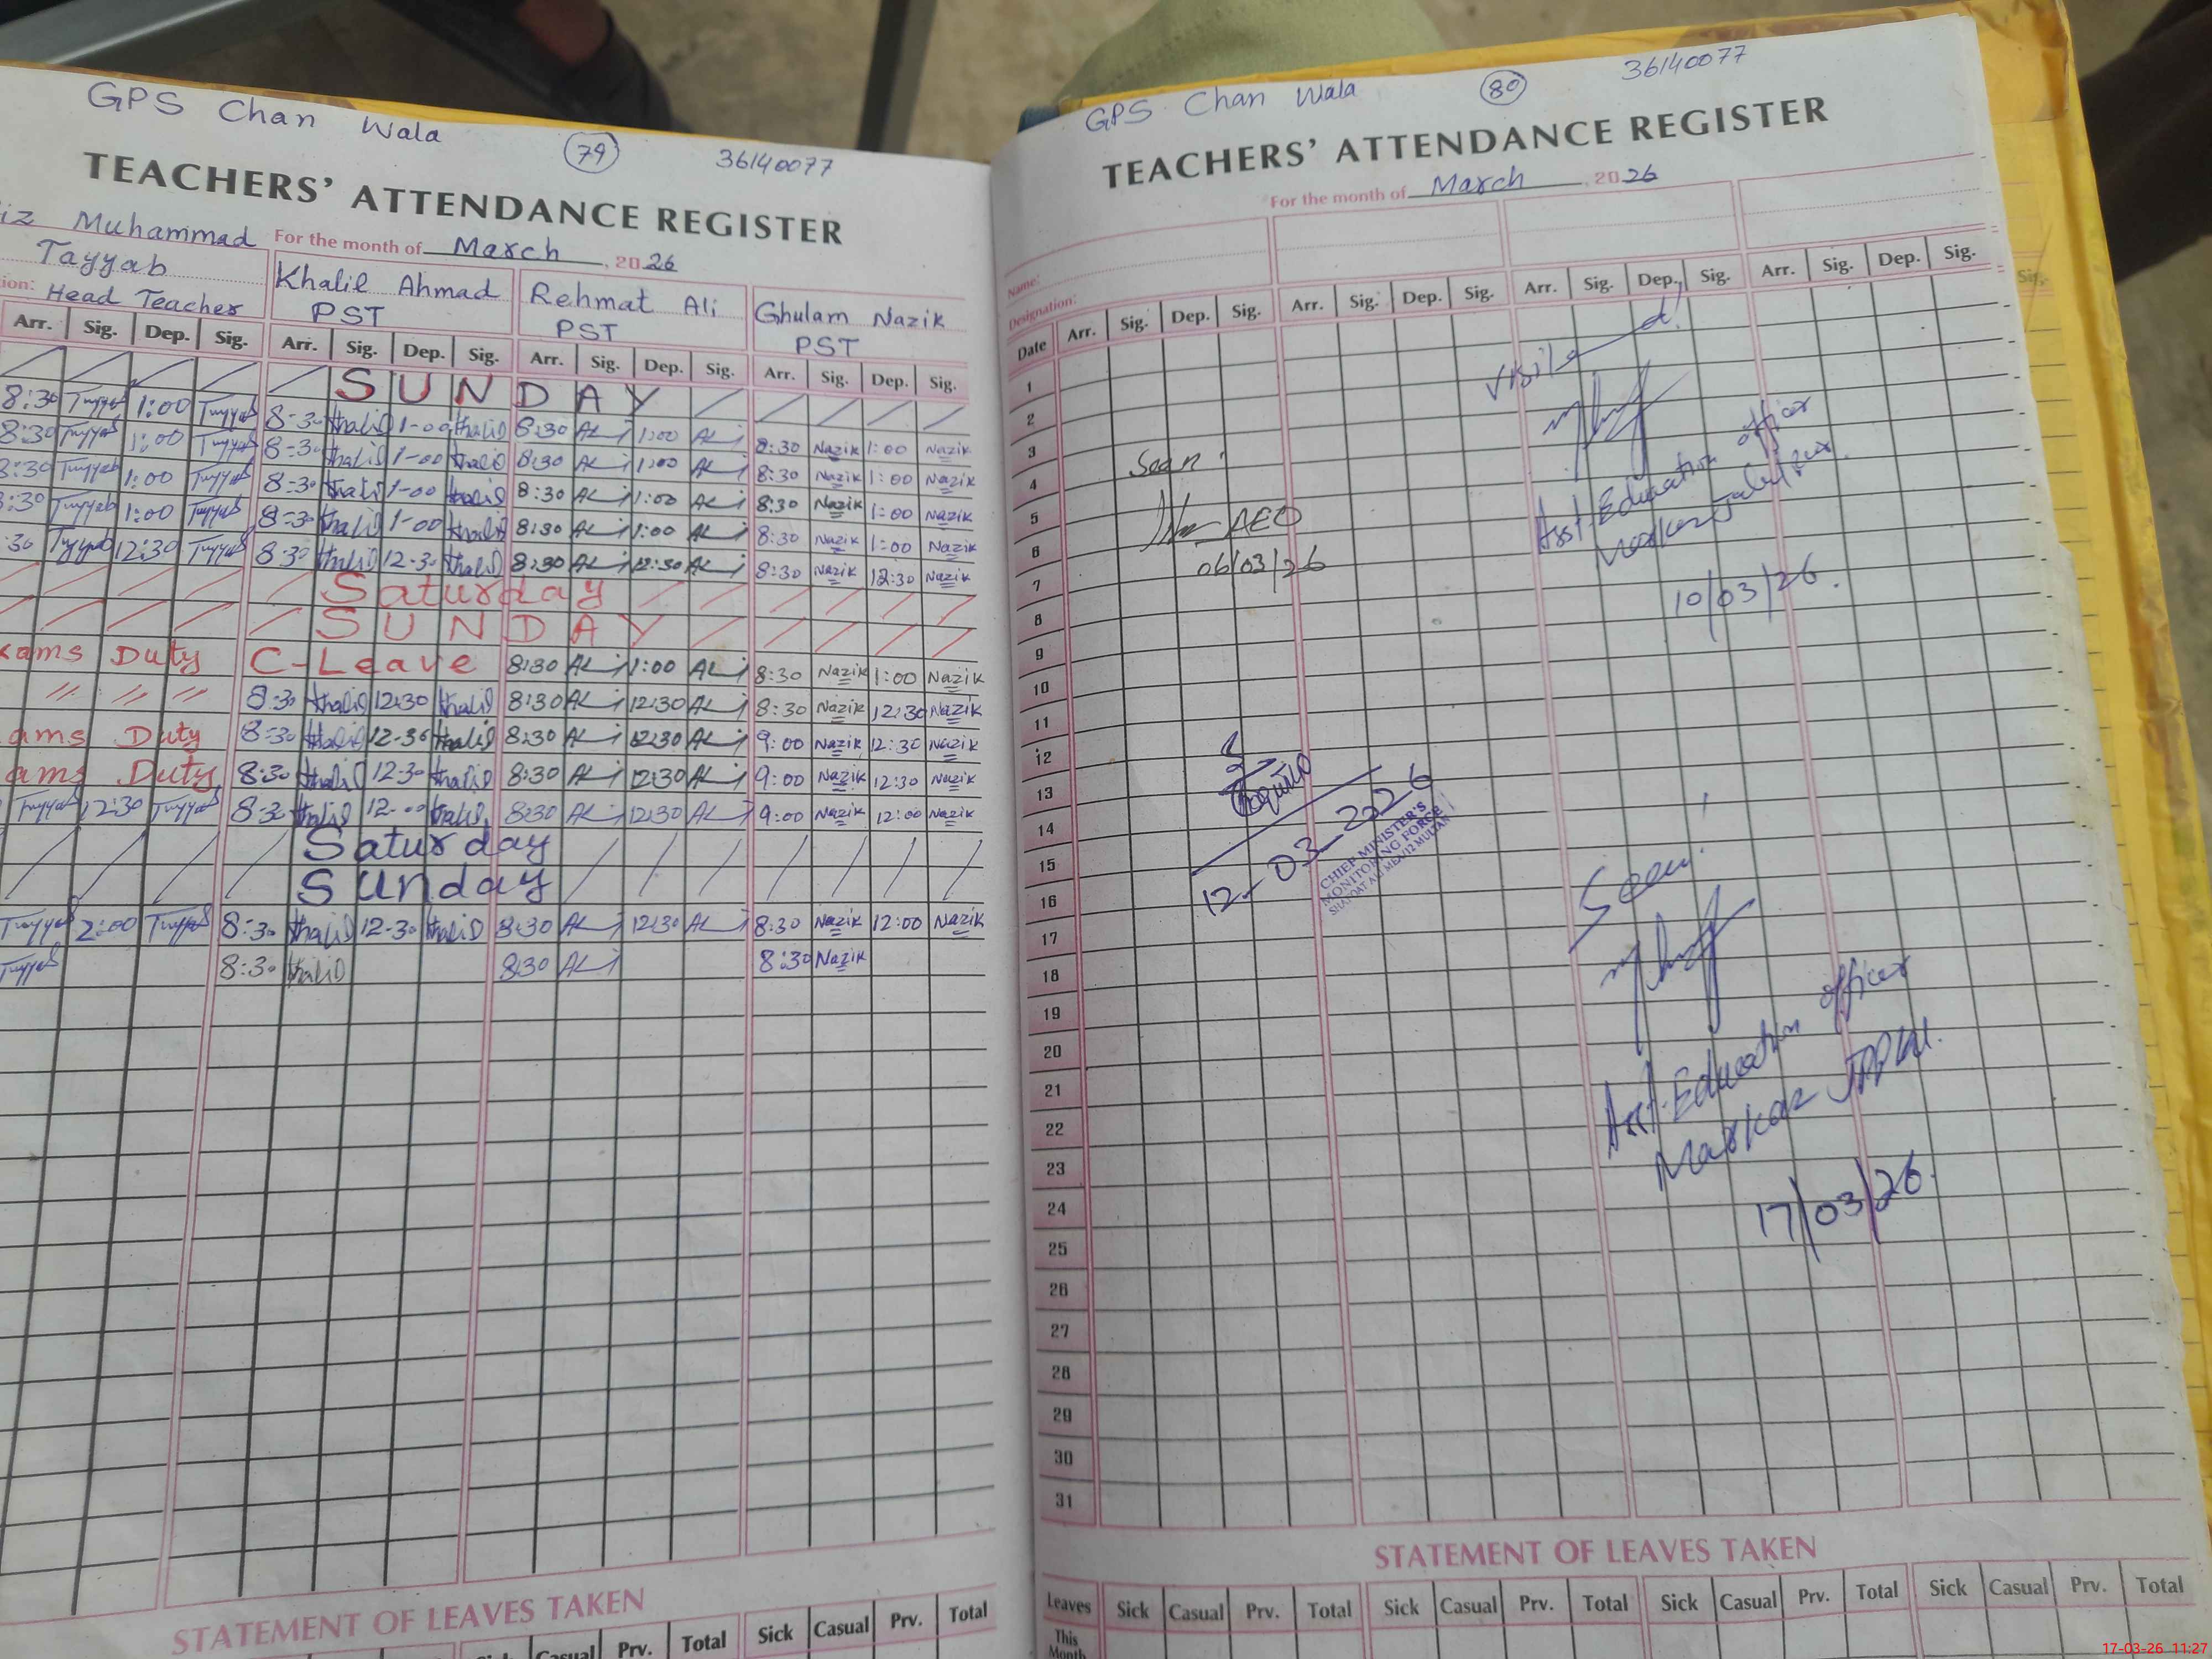 GPS Chan Wala
79
36140077
TEACHERS' ATTENDANCE REGISTER
iz Muhammad
Tayyab
For the month of March, 2026
ion: Head Teacher
Khalil Ahmad
PST
Rehmat Ali
PST
Ghulam Nazik
PST
Arr. Sig. Dep. Sig. Arr. Sig. Dep. Sig. Arr. Sig. Dep. Sig. Arr. Sig. Dep. Sig.
SUNDAY
8:30 Tayyab 1:00 Tayyab 8-30 Khalid 1-00 Khalid 8:30 ALi 1:00 ALi 8:30 Nazik 1:00 Nazik
8:30 Tayyab 1:00 Tayyab 8-30 Khalid 1-00 Khalid 8:30 ALi 1:00 ALi 8:30 Nazik 1:00 Nazik
8:30 Tayyab 1:00 Tayyab 8-30 Khalid 1-00 Khalid 8:30 ALi 1:00 ALi 8:30 Nazik 1:00 Nazik
8:30 Tayyab 1:00 Tayyab 8-30 Khalid 1-00 Khalid 8:30 ALi 1:00 ALi 8:30 Nazik 1:00 Nazik
:30 Tayyab 12:30 Tayyab 8-30 Khalid 12-30 Khalid 8:30 ALi 12:30 ALi 8:30 Nazik 12:30 Nazik
Saturday
SUNDAY
xams Duty C-Leave 8:30 ALi 1:00 ALi 8:30 Nazik 1:00 Nazik
" " " 8:30 Khalid 12:30 Khalid 8:30 ALi 12:30 ALi 8:30 Nazik 12:30 Nazik
ams Duty 8-30 Khalid 12-30 Khalid 8:30 ALi 12:30 ALi 9:00 Nazik 12:30 Nazik
ams Duty 8:30 Khalid 12:30 Khalid 8:30 ALi 12:30 ALi 9:00 Nazik 12:30 Nazik
Tayyab 12:30 Tayyab 8-30 Khalid 12-00 Khalid 8:30 ALi 12:30 ALi 9:00 Nazik 12:00 Nazik
Saturday
Sunday
Tayyab 2:00 Tayyab 8:30 Khalid 12-30 Khalid 8:30 ALi 12:30 ALi 8:30 Nazik 12:00 Nazik
Tayyab 8:30 Khalid 8:30 ALi 8:30 Nazik
STATEMENT OF LEAVES TAKEN
Casual Prv. Total Sick Casual Prv. Total
GPS Chan Wala
80
36140077
TEACHERS' ATTENDANCE REGISTER
For the month of March, 2026
Name:
Designation:
Date Arr. Sig. Dep. Sig. Arr. Sig. Dep. Sig. Arr. Sig. Dep. Sig. Arr. Sig. Dep. Sig.
Sig.
1
2
3
4
5
6
7
8
9
10
11
12
13
14
15
16
17
18
19
20
21
22
23
24
25
26
27
28
29
30
31
Visited
Asst. Education officer
10/03/26.
Seen.
AEO
06/03/26
12-03-2026
CHIEF MINISTER'S
MONITORING FORCE
Seen!
Asst. Education officer
Markaz JPPW.
17/03/26.
STATEMENT OF LEAVES TAKEN
Leaves Sick Casual Prv. Total Sick Casual Prv. Total Sick Casual Prv. Total Sick Casual Prv. Total
This
Month
17-03-26 11:27